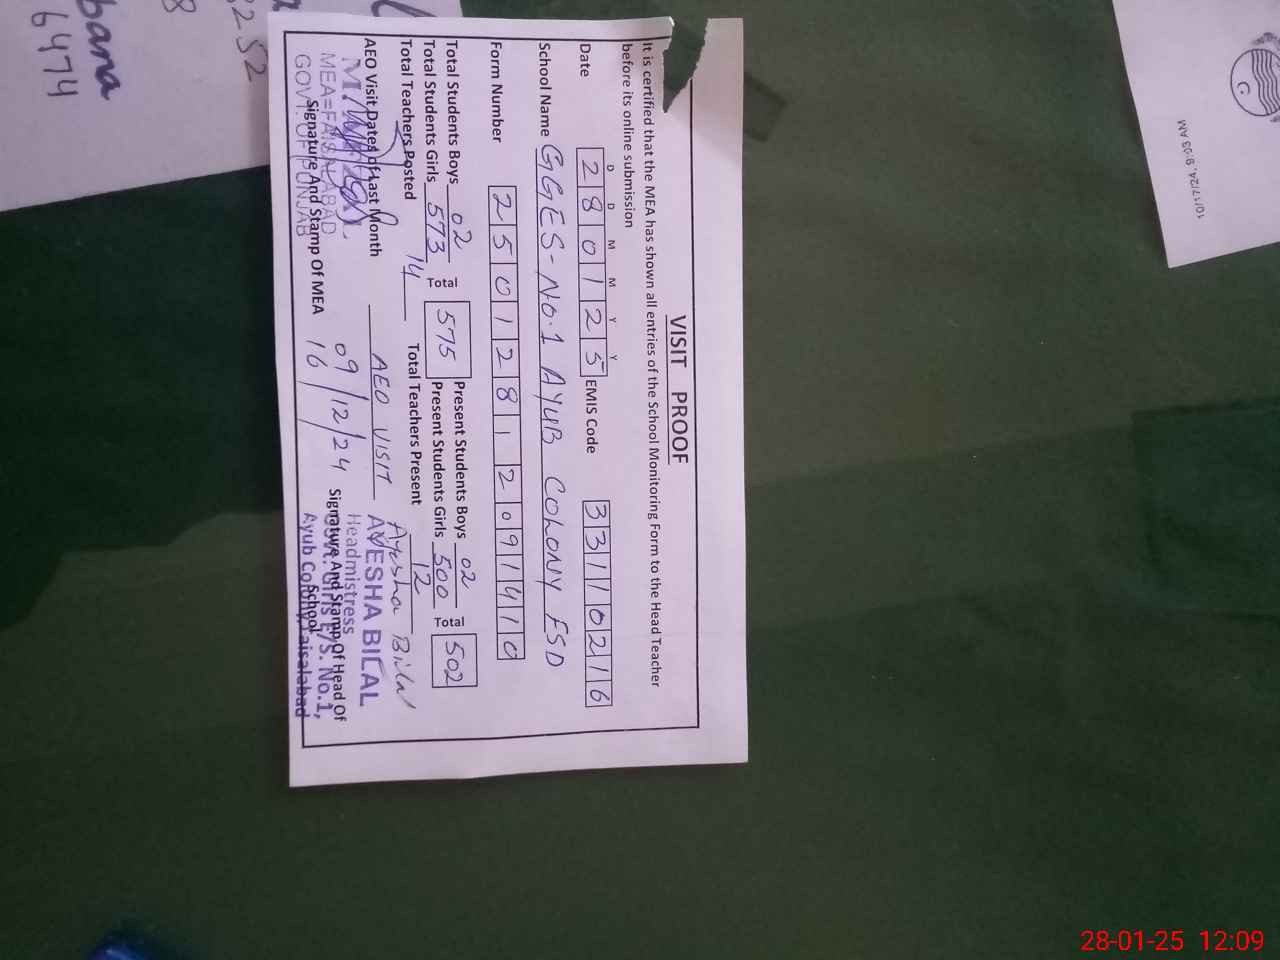 VISIT PROOF
It is certified that the MEA has shown all entries of the School Monitoring Form to the Head Teacher
before its online submission
D D M M Y Y
Date 2 8 0 1 2 5 EMIS Code 3 3 1 1 0 2 1 6
School Name GGES-No.1 AYUB COLONY FSD
Form Number 2 5 0 1 2 8 1 2 0 9 1 4 1 0
Total Students Boys 02 Total 575 Present Students Boys 02 Total 502
Total Students Girls 573 Present Students Girls 500
Total Teachers Posted 14 Total Teachers Present 12
AEO Visit Dates of Last Month AEO VISIT
09/12/24
16/
Ayesha Bilal
AYESHA BILAL
Headmistress
Govt. Girls E/S. No.1,
Ayub Colony, Faisalabad
MEA=FAISALABAD
GOVT. OF PUNJAB
Signature And Stamp Of MEA
Signature And Stamp Of Head Of
School
bana
6474
8
3252
10/17/24, 9:03 AM
28-01-25 12:09